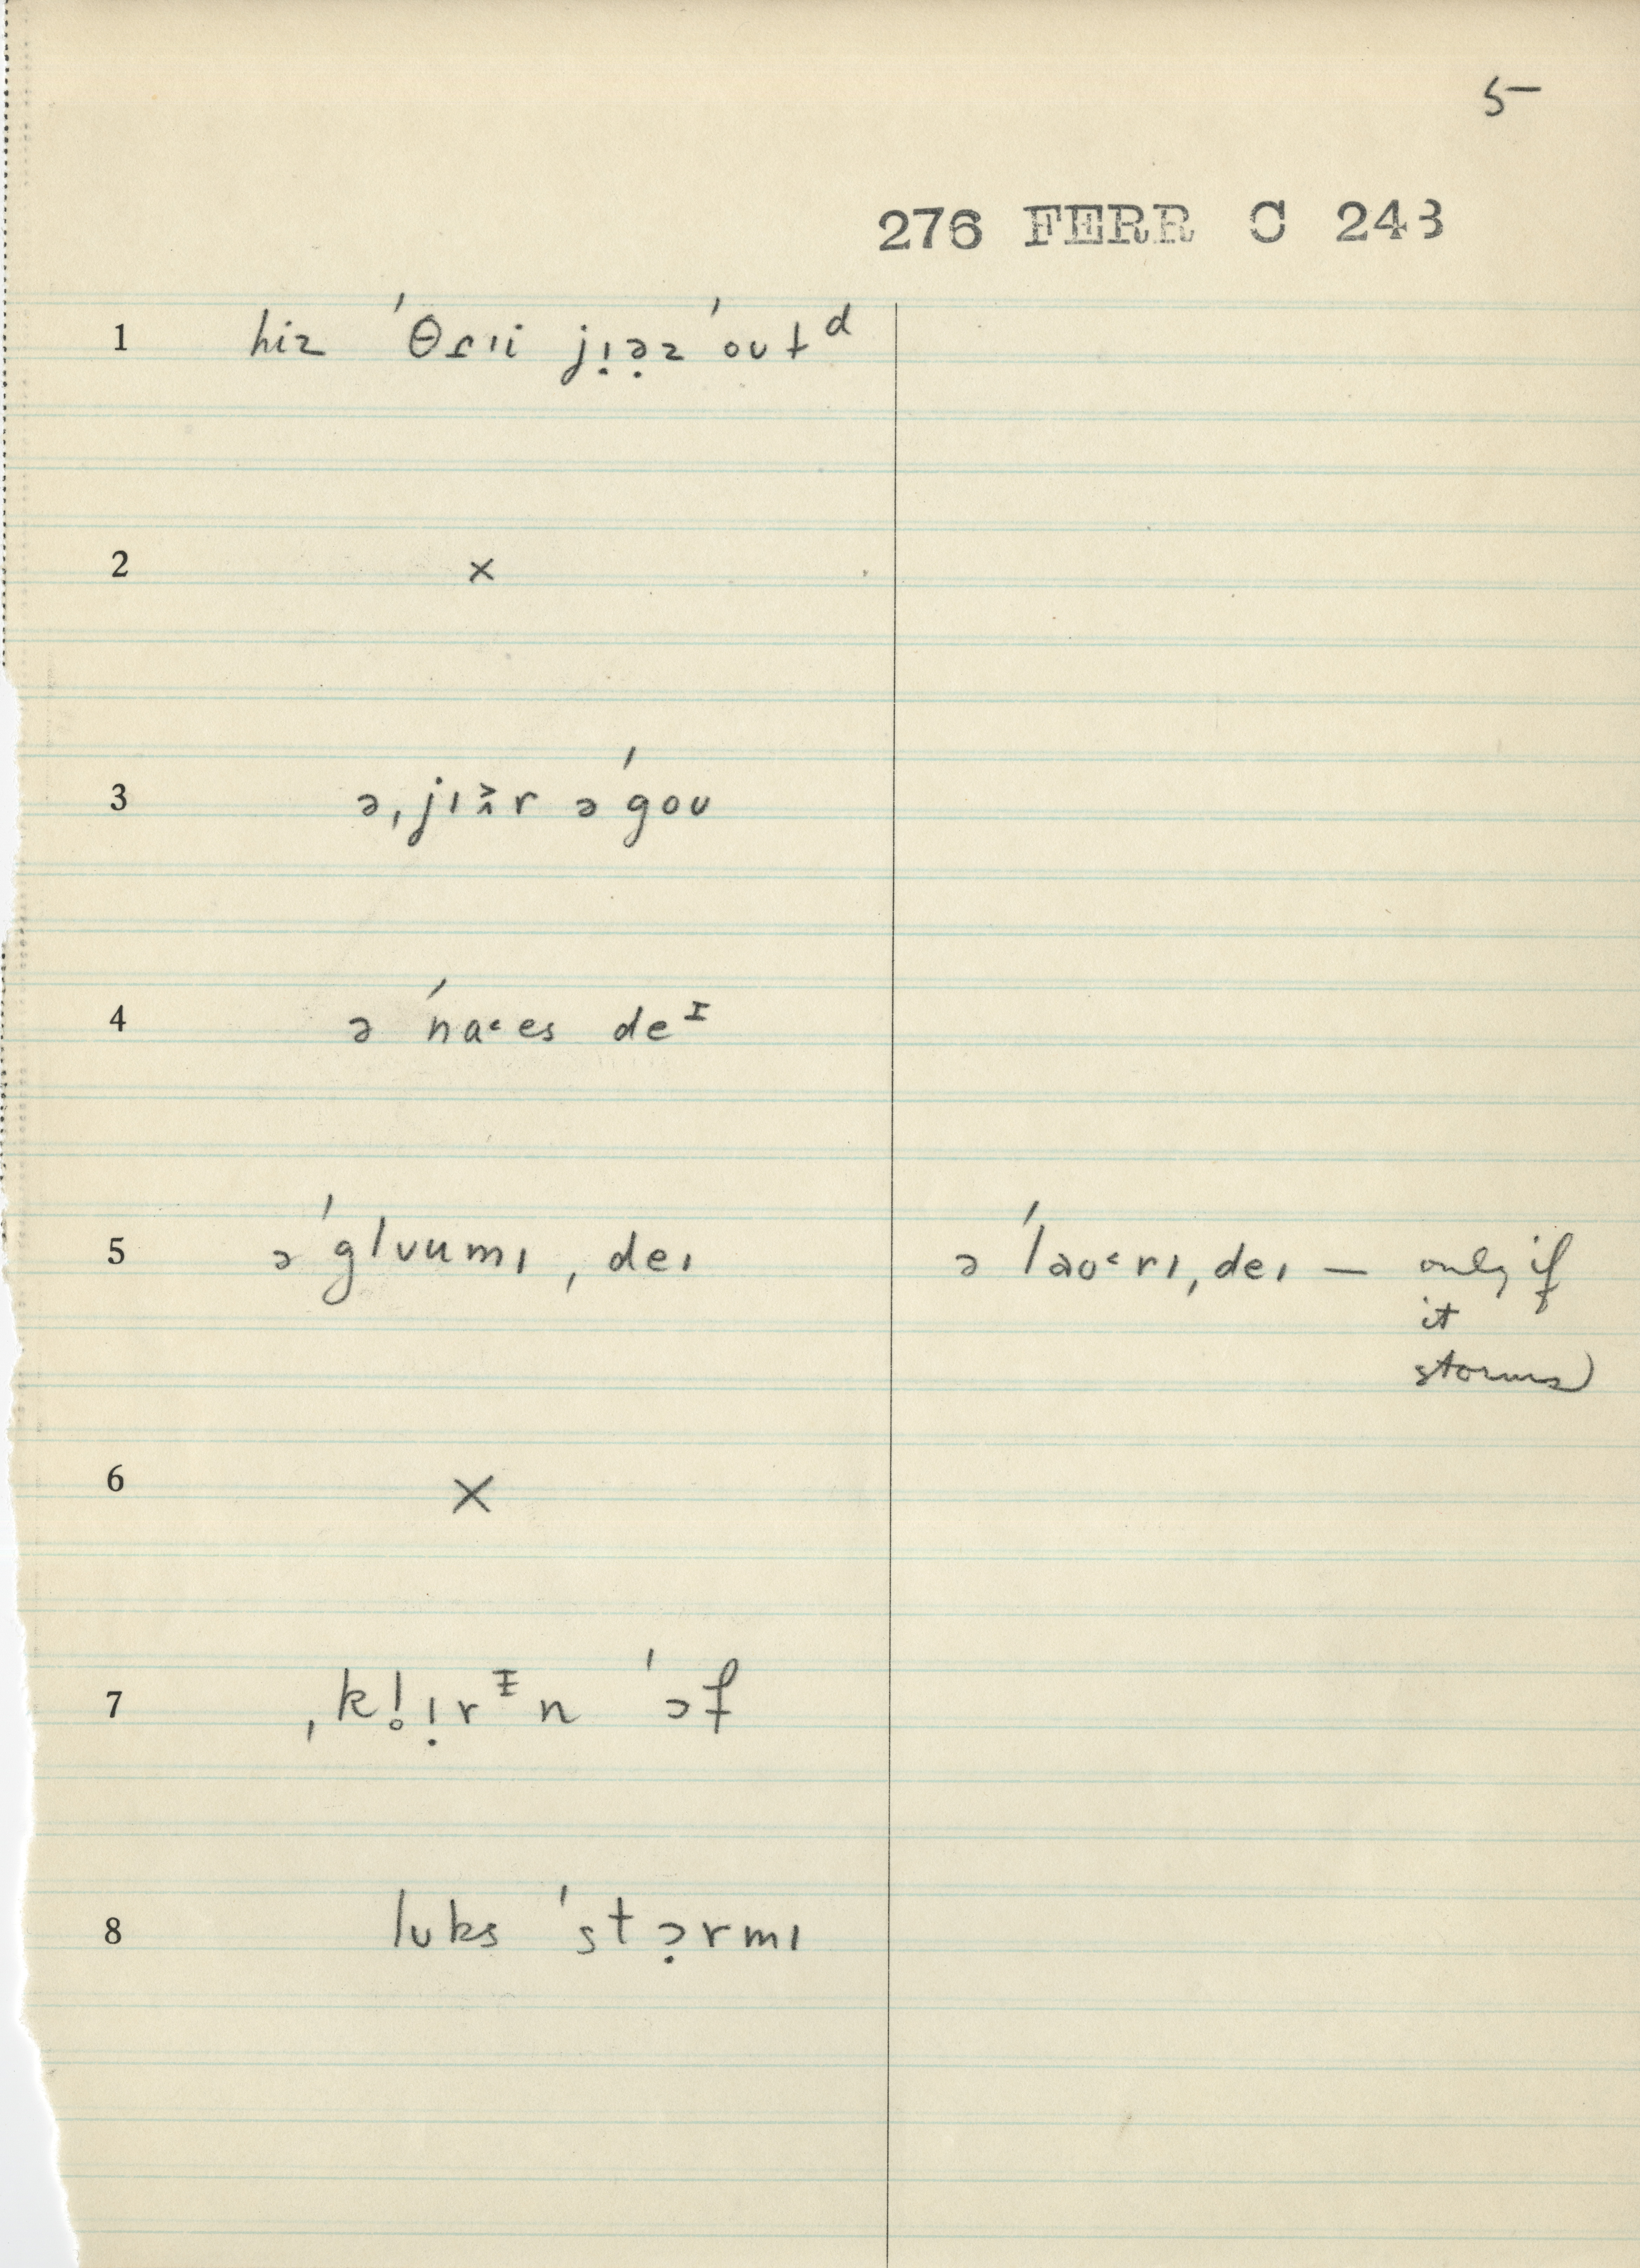 5
276 FERR C 243
1 hiz ˈθɾɪi jɪ̣ə̣z ˈoʊtᵈ
2 ×
3 ə ˌjɪɜ^r ə ˈgoʊ
4 ə ˈna˂es deᴵ
5 ə ˈglʊumɪ ˌdeɪ ə ˈlaʊ˂rɪ ˌdeɪ — only if
it
storms)
6 ×
7 ˌkl̥ɪ̣rᵻn ˈɔf
8 lʊks ˈstɔ̣rmɪ